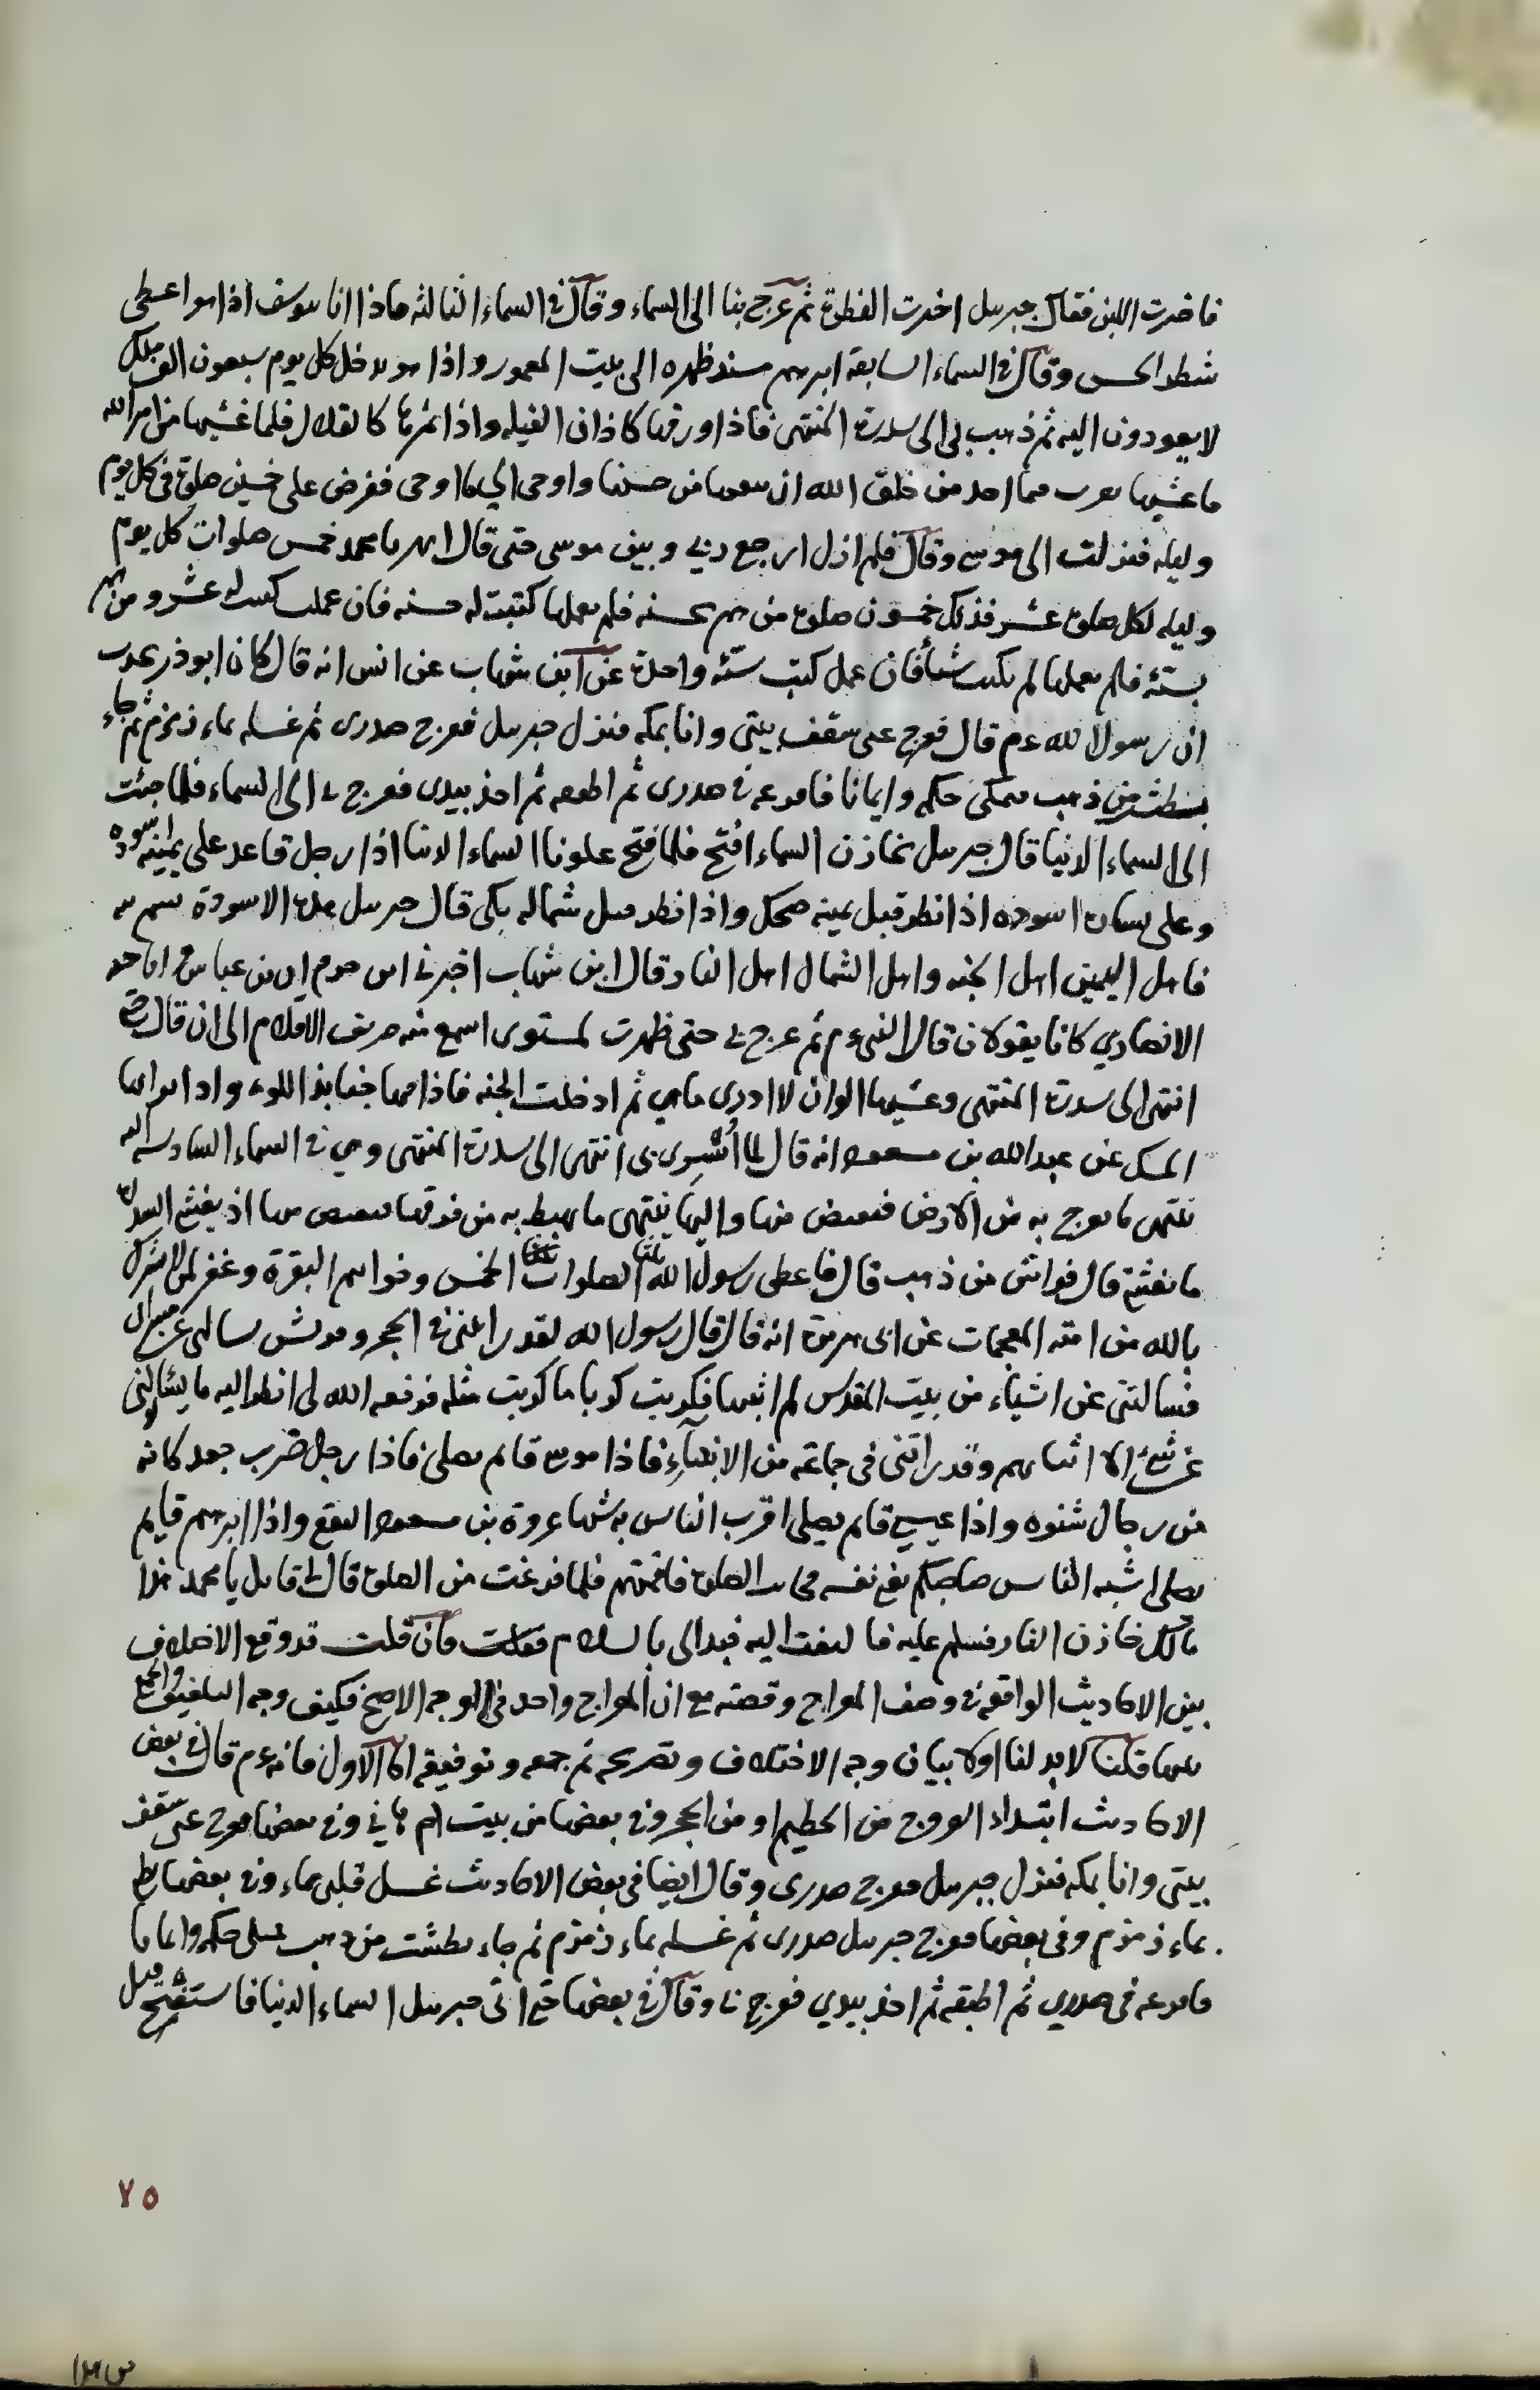 فاخترت اللبن فقال جبريل اخترت الفطرة ثم عرج بنا الى السماء وقال في السماء الثالثة فاذا انا بيوسف اذا هو اعطى
شطر الحسن وقال في السماء السابعة ابرهيم مسند ظهره الى بيت المعمور واذا هو يدخل كل يوم سبعون الف ملك
لا يعودون اليه ثم ذهب بي الى سدرة المنتهى فاذا ورقها كاذان الفيله واذا ثمرها كالقلال فلما غشيها من امر الله
ما غشيها تغيرت فما احد من خلق الله ان ينعتها من حسنها واوحى الي ما اوحى ففرض على خمسين صلوة في كل يوم
وليله فنزلت الى موسى وقال فلم ازل ارجع ربي وبين موسى حتى قال يا محمد خمس صلوات كل يوم
وليله لكل صلوة عشر فذلك خمسون صلوة من هم بحسنه فلم يعملها كتبت له حسنه فان عملت كتبت له عشر ومن هم
بسيئة فلم يعملها لم يكتب شيأ فان عمل كتبت سيئه واحدة عن ابن شهاب عن انس انه قال كان ابو ذر يحدث
ان رسول الله عم قال فرج عني سقف بيتي وانا بمكه فنزل جبريل ففرج صدرى ثم غسله بماء زمزم ثم جاء
بطشت من ذهب ممتلى حكمه وايمانا فافرغه في صدرى ثم اطبقه ثم اخذ بيدى فعرج بي الى السماء فلما جئت
الى السماء الدنيا قال جبريل لخازن السماء افتح فلما فتح علونا السماء الدنيا اذا رجل قاعد على يمينه اسوده
وعلى يساره اسوده اذا نظر قبل يمينه ضحك واذا نظر قبل شماله بكى قال جبريل هذه الاسودة نسم بنيه
فاهل اليمين اهل الجنه واهل الشمال اهل النار وقال ابن شهاب اخبرني ابن حزم ان ابن عباس وابا حبه
الانصاري كانا يقولان قال النبي عم ثم عرج بي حتى ظهرت لمستوى اسمع فيه صريف الاقلام الى ان قال حتى
انتهى الى سدرة المنتهى وغشيها الوان لا ادرى ما هي ثم ادخلت الجنه فاذا فيها جنابذ اللؤلؤ واذا ترابها
المسك عن عبد الله بن مسعود انه قال لما اُسْرِى بى انتهى الى سدرة المنتهى وهي في السماء السادسه اليه
ينتهى ما يعرج به من الارض فيقبض منها واليها ينتهى ما يهبط به من فوقها فيقبض منها اذ يغشى السدرة
ما يغشى قال فراش من ذهب قال فاعطى رسول الله ثلثا الصلوات الخمس وخواتيم البقرة وغفر لمن لا يشرك
بالله من امته المقحمات عن ابى هريرة انه قال قال رسول الله لقد رايتني في الحجر وقريش يسالنى عن مسراى
فسالتنى عن اشياء من بيت المقدس لم اثبتها فكربت كربا ما كربت مثله فرفعه الله لى انظر اليه ما يسألونى
عن شئ الا انباتهم وقد رايتنى في جماعة من الانبياء فاذا موسى قايم يصلى فاذا رجل ضرب جعد كانه
من رجال شنوه واذا عيسى قايم يصلي اقرب الناس به شبها عروة بن مسعود الثقفى واذا ابرهيم قايم
يصلى اشبه الناس صاحبكم يعني نفسه فحانت الصلوة فاممتهم فلما فرغت من الصلوة قال لى قايل يا محمد هذا
مالك خازن النار فسلم عليه فالتفت اليه فبدانى بالسلام فان قلت قد وقع الاختلاف
بين الاحاديث الواقعه في وصف المعراج وقصته مع ان المعراج واحد في الوجه الاصح فكيف وجه التلفيق والجمع
بينها قلنا لا بد لنا اولا بيان وجه الاختلاف وتصريحه ثم جمعه وتوفيقه اما الاول فانه عم قال في بعض
الاحاديث ابتداء العروج من الحطيم او من الحجر وفي بعضها من بيت ام هاني وفي بعضها فرج عنى سقف
بيتي وانا بمكه فنزل جبريل ففرج صدرى وقال ايضا في بعض الاحاديث غسل قلبى بماء وفي بعضها بطنى
بماء زمزم وفى بعضها ففرج جبريل صدرى ثم غسله بماء زمزم ثم جاء بطشت من ذهب ممتلى حكمه وايمانا
فافرغه في صدري ثم اطبقه ثم اخذ بيدي فعرج بي وقال في بعضها حتى اتى جبريل السماء الدنيا فاستفتح قيل
٧٥